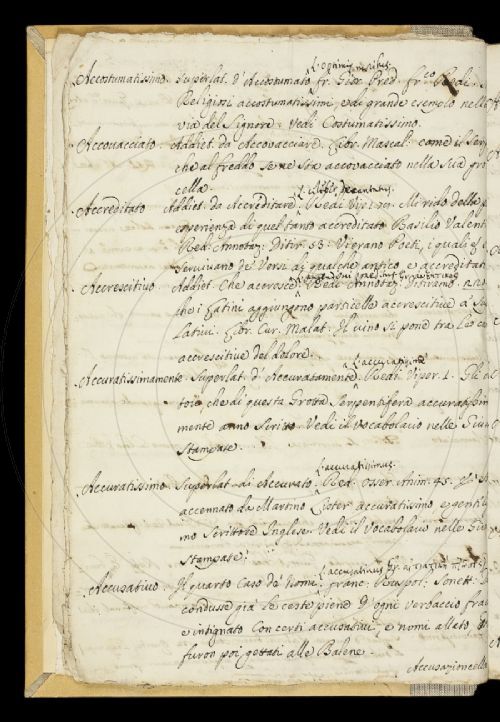 Accostumatissimo. Superlat. d'Accostumato. fr. Gior. Pred.
Religiosi accostumatissimi, e di grande esemplo nella
via del Signore. Vedi Costumatissimo.
Accovacciato. Addiet. da Accovacciare. Libr. Mascal. come il
che al freddo se ne sta accovacciato nella sua
cella.
Accreditato. Addiet. da Accreditare. Redi Vip. Mi rido della
esperienza di quel tanto accreditato Basilio Valent
Red. Annotaz. Ditir. 53. Vierano Poeti, i quali
servivano de' Versi di qualche antico e accreditato
Accrescitivo. Addiet. Che accresce. Redi Annotaz. Ditiramb.
che i Latini aggiungono particelle accrescitive a
lativi. Libr. Cur. Malat. Il vino si pone tra le co
accrescitive del dolore.
L. accuratissime
Accuratissimamente. Superlat. d'Accuratamente. Redi Viper. 1. Gli
torie che di questa Grotta Serpentifera accuratissima
mente anno scritto. Vedi il vocabolario nelle Giun
Stampate.
L. accuratissimus.
Accuratissimo. Superlat. di Accurato. Red. Osser. Anim. 95.
accennato da Martino Lister accuratissimo e gentilis
mo Scrittore Inglese. Vedi il Vocabolario nelle Giu
Stampate.
L. accusativus
Accusativo. Il quarto Caso de' Nomi. Franc. Ruspol. Sonett.
condusse già le ceste piene d'ogni verbaccio
e intignato Con certi accusativi, e nomi allato,
furon poi gettati alle Balene.